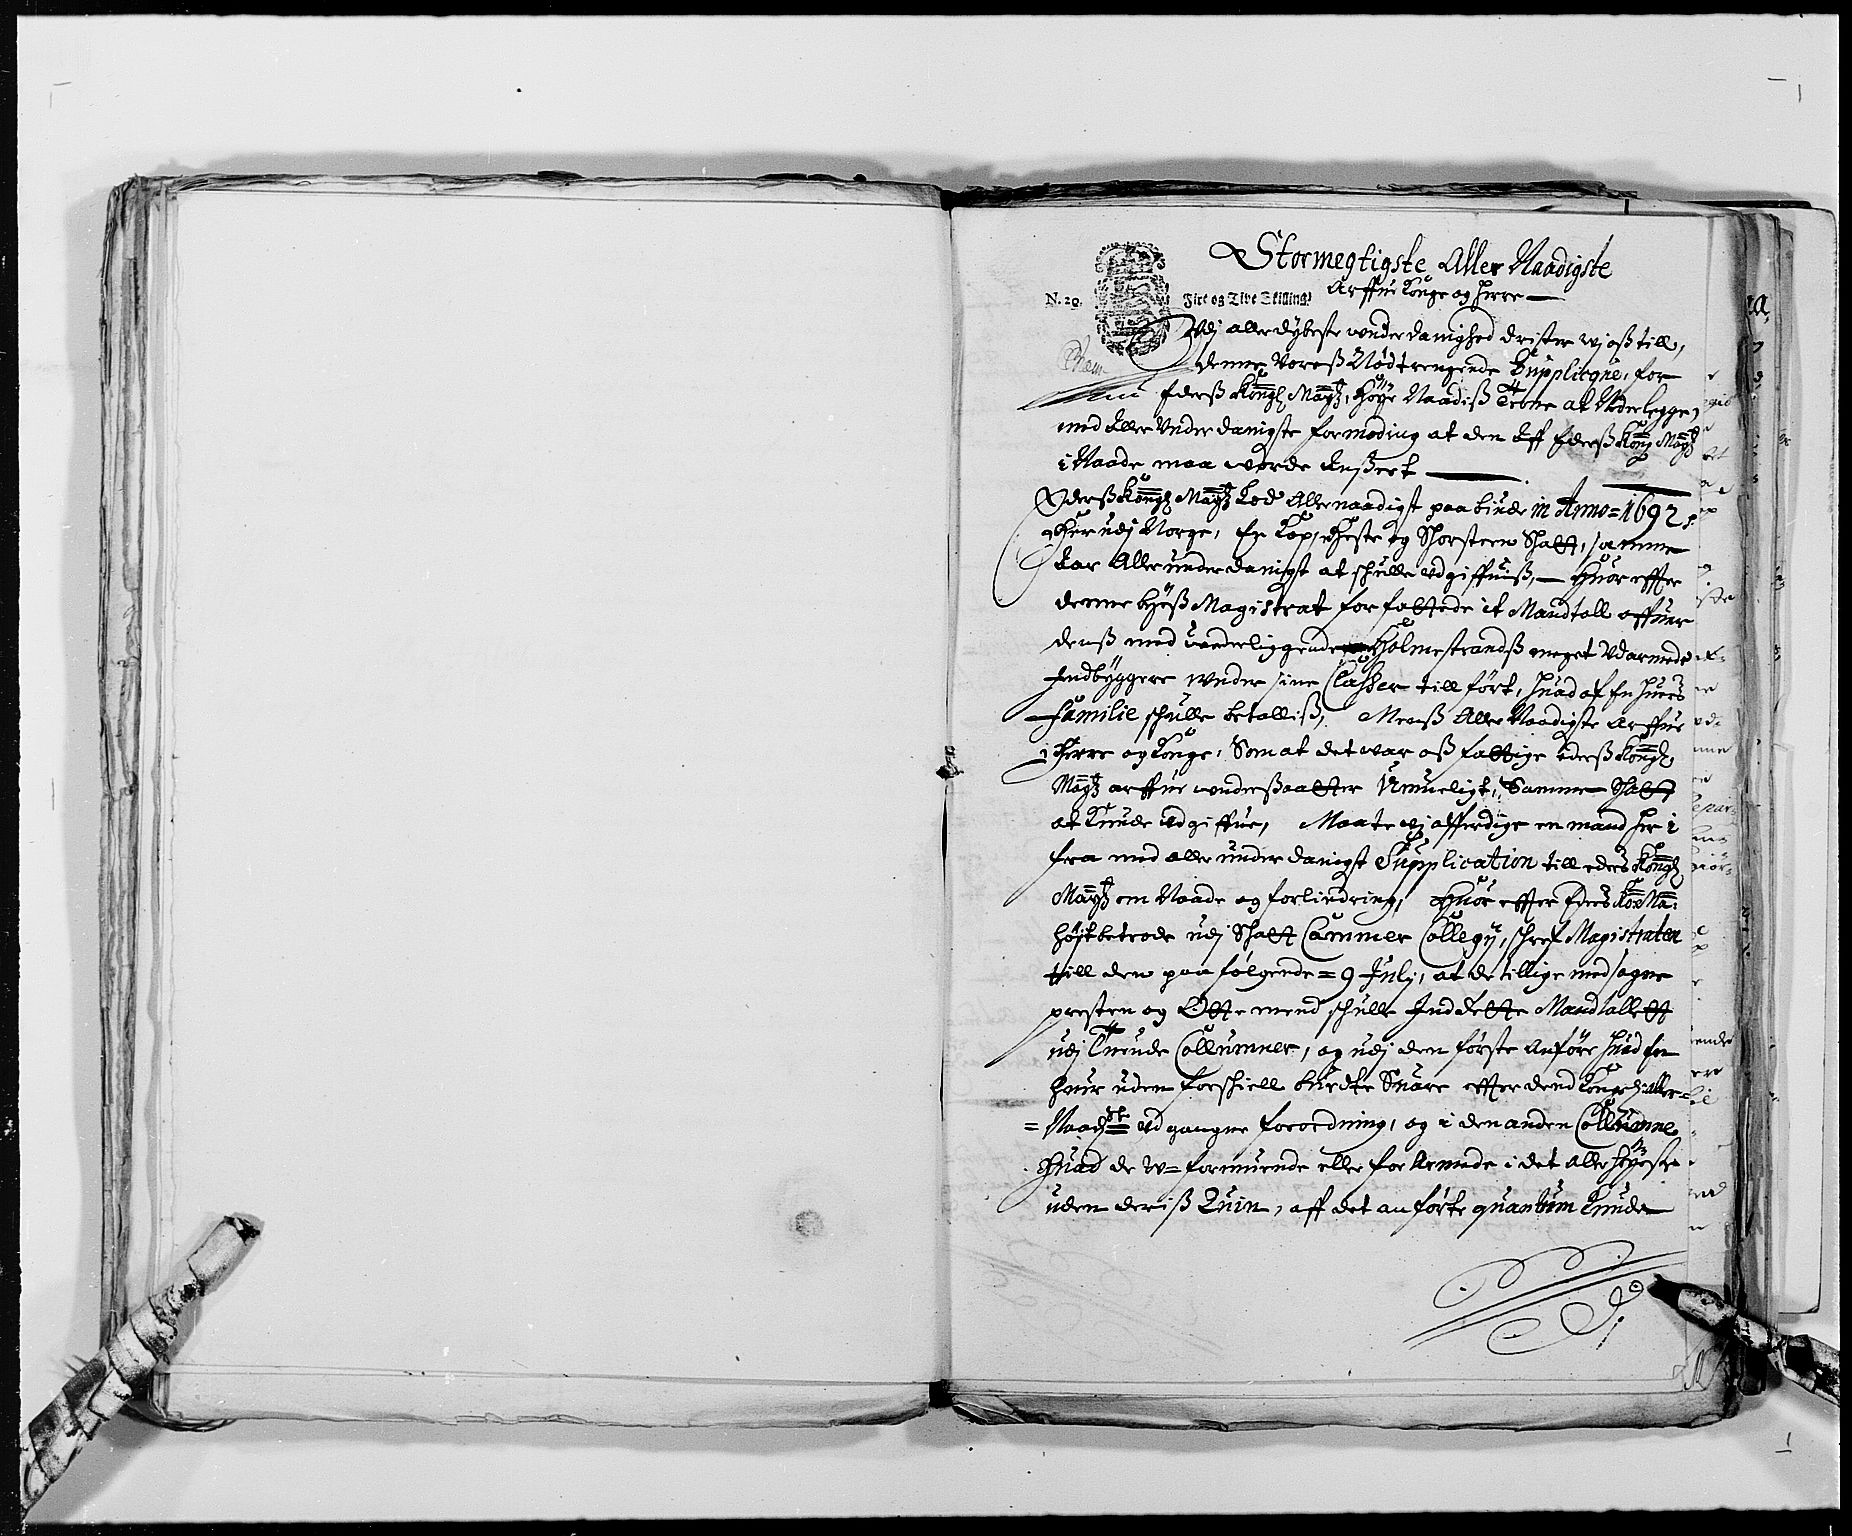 Stormegtigste Aller Naadigste
Arffue Konge og Herre
N. 29. Fire og Tive Skilling.
Udj allerdybeste underdanighed drister wj oß till,
denne Voreß Nødtrengende Supplicqve, for
Ederß Kongl Maytz, Høye Naadiß Trone at Nederlegge,
med Aller Underdanigste formoding at den Aff Ederß Kong Maytz
i Naade maa worde Anseet
Ederß Kongl Maytz Lod Allernaadigst paabiude in Anno = 1692,
Her udj Norge, En Kop, Heste og Skorsteen Skatt, samme
Allerunderdanigst at schulle udgiffuiß, Huor effter
denne byeß Magistrat forfattede it Mandtall offuer
denß med underliggende Holmestrandß meget Udarmede
Indbyggere under sine Classer till ført, huad af En huers
Familie schulle betalliß, Menß Aller Naadigste Arffue
Herre og Konge, Som at det war oß fattige Ederß Kongl
Maytz arffue underßaatter Umueligt, Samme Skatt
at kunde udgiffue, Maate vj afferdige en mand her i
fra med allerunderdanigst Supplication till eders Kongl
Maytz om Naade og forlindring, Huor effter Eders Ko Ma:
højtbetrode udj Skatt Cammer Collegij, schref Magistraten
till den paafølgende = 9 Julj, at de tillige med sogne
presten og Otte mend schulle Inddette Mandtallett
udj Tuende Collumner, og udj den første Anføre huad En
huer uden forschiell burdte Suare effter dend Kongl: aller=
= Naadste udgangne forordning, og i den anden Collumne
Huad de u=formuende eller forarmede i det aller høyeste
uden deriß Ruin, aff det anførte quantum kunde